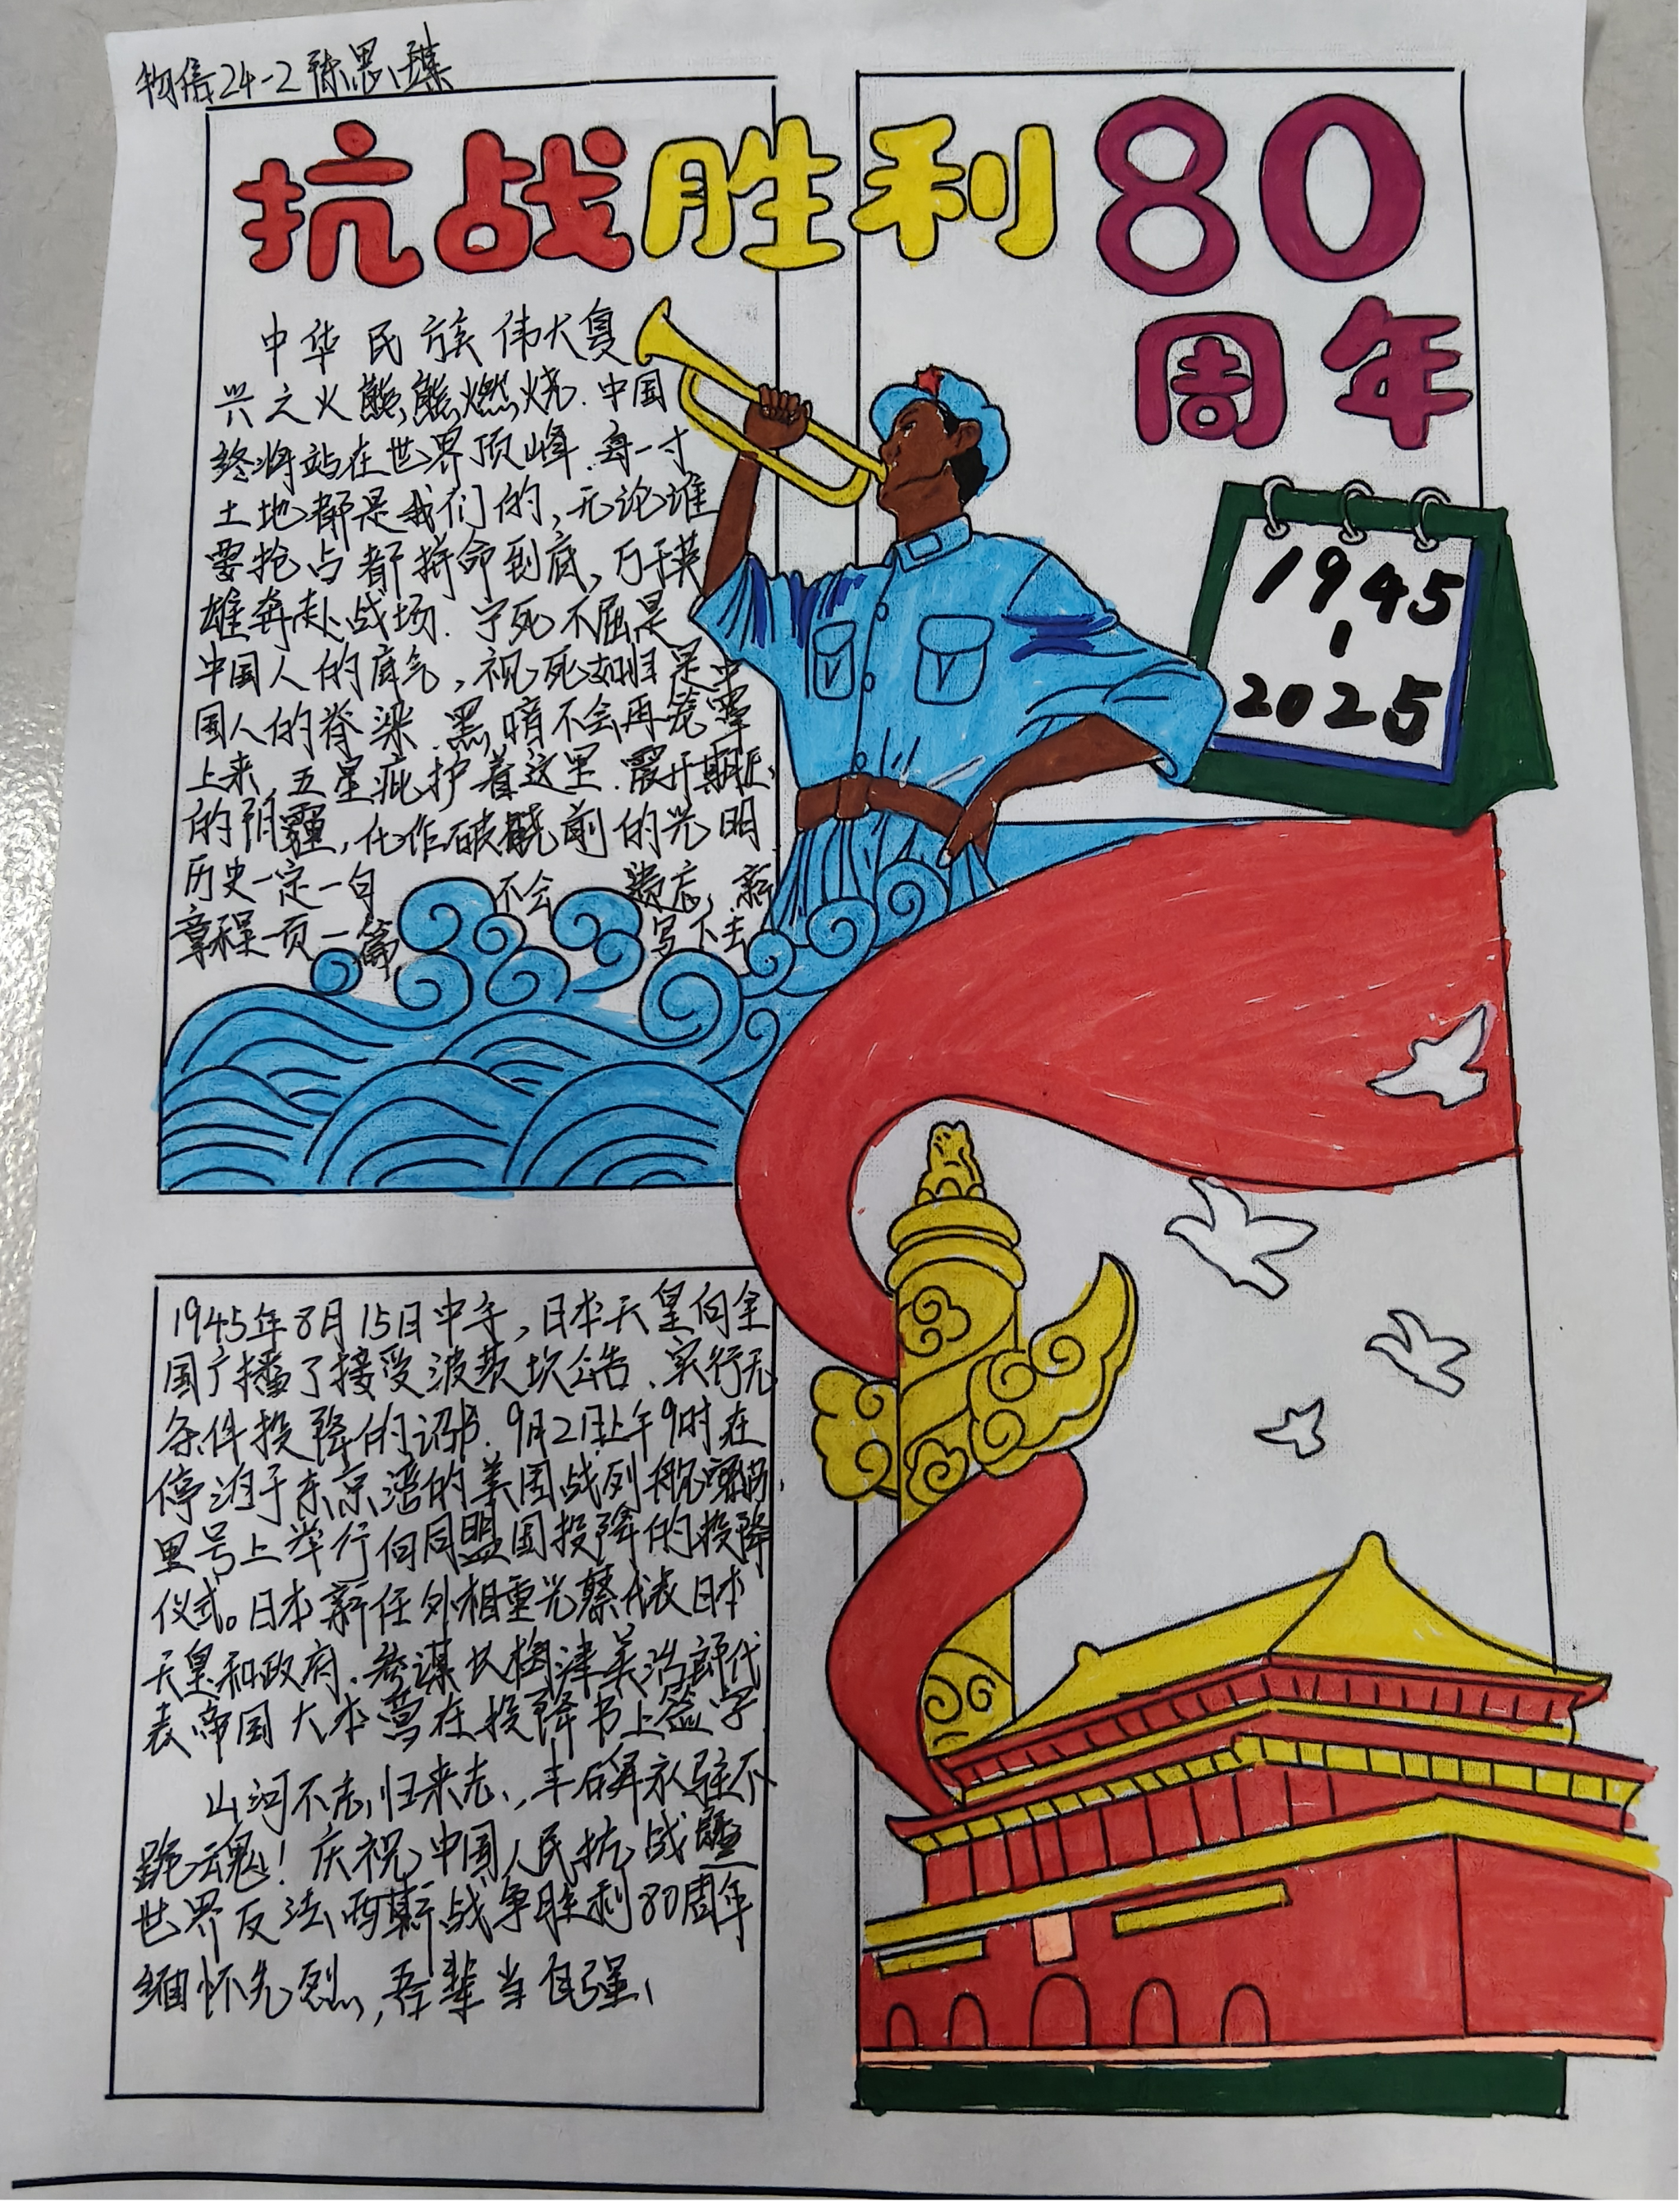 物信24-2 陈思璟
抗战胜利80
周年
中华民族伟大复
兴之火熊熊燃烧.中国
终将站在世界顶峰.每一寸
土地都是我们的,无论谁
要抢占都拼命到底,万千英
雄奔赴战场.宁死不屈是
中国人的底气,视死如归是中
国人的脊梁.黑暗不会再笼罩
上来,五星庇护着这里.震开
的阴霾,化作破晓前的光明
历史一定一句不会遗忘,新
章程一页一篇写下去
1945
-
2025
1945年8月15日中午,日本天皇向全
国广播了接受波茨坎公告、实行无
条件投降的诏书.9月2日上午9时在
停泊于东京湾的美国战列舰密苏
里号上举行向同盟国投降的投降
仪式。日本新任外相重光葵代表日本
天皇和政府、参谋长梅津美治郎代
表帝国大本营在投降书上签字
山河不忘归来志,丰碑永驻不
跪魂!庆祝中国人民抗战暨
世界反法西斯战争胜利80周年
缅怀先烈,吾辈当自强、